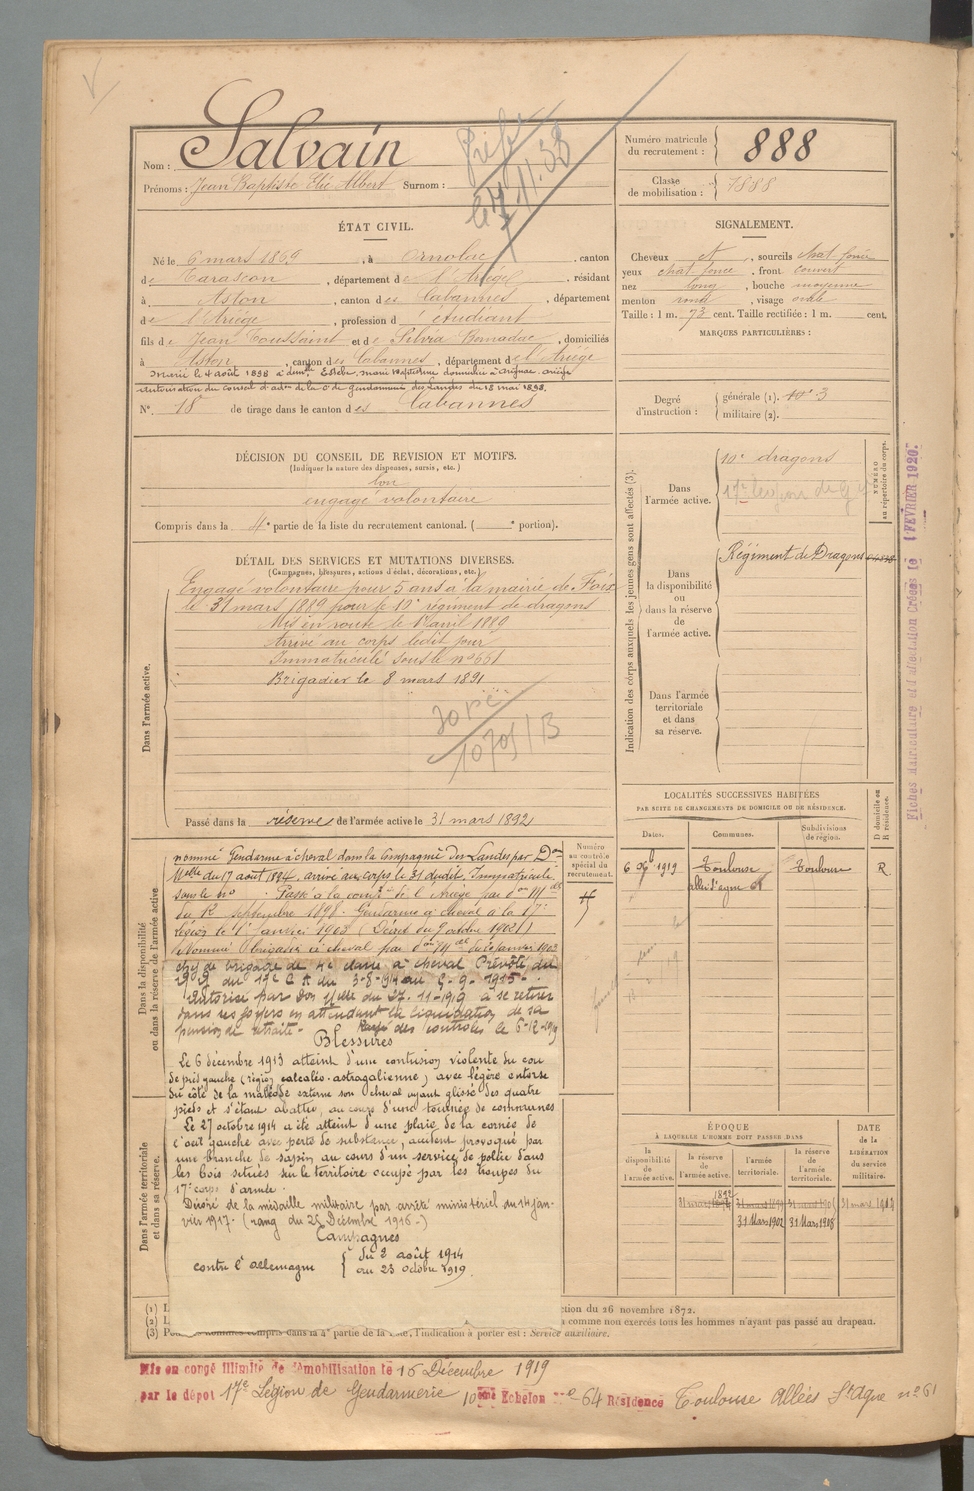 Nom : Salvain
Prénoms : Jean Baptiste Elie Albert Surnom :
Numéro matricule du recrutement : 888
Classe de mobilisation : 1888
ÉTAT CIVIL.
Né le 6 mars 1869, à Ornolac, canton
de Tarascon, département de l'Ariège, résidant
à Aston, canton des Cabannes, département
de l'Ariège, profession d'étudiant
fils de Jean Toussaint et de Silvia Bonadac, domiciliés
à Aston, canton des Cabannes, département de l'Ariège
Marié le 4 août 1898 à demlle Estèbe, marie domiciliée à Arignac, ariège
Autorisation du conseil d'adon de la Cie de gendarmerie des Landes du 18 mai 1898.
N° 18 de tirage dans le canton des Cabannes
SIGNALEMENT.
Cheveux et, sourcils chat. foncé
yeux chat. foncé, front couvert
nez long, bouche moyenne
menton rond, visage ovale
Taille : 1 m. 73 cent. Taille rectifiée : 1 m. cent.
MARQUES PARTICULIÈRES :
Degré d'instruction : générale (1). 3
militaire (2).
DÉCISION DU CONSEIL DE REVISION ET MOTIFS.
(Indiquer la nature des dispenses, sursis, etc.)
bon
engagé volontaire
Compris dans la 4e partie de la liste du recrutement cantonal. ( e portion).
DÉTAIL DES SERVICES ET MUTATIONS DIVERSES.
(Campagnes, blessures, actions d'éclat, décorations, etc.)
Dans l'armée active.
Engagé volontaire pour 5 ans à la mairie de Foix
le 31 mars 1889 pour le 10e régiment de dragons
Mis en route le 1er avril 1889
Arrivé au corps ledit jour
Immatriculé sous le n° 551
Brigadier le 8 mars 1891
Passé dans la réserve de l'armée active le 31 mars 1892
Indication des corps auxquels les jeunes gens sont affectés (3).
NUMÉRO au répertoire du corps.
Dans l'armée active.
10e dragons
17e Légion de
Dans la disponibilité ou dans la réserve de l'armée active.
Régiment de Dragons
Dans l'armée territoriale et dans sa réserve.
Fiches matriculaire et d'affectation Créées le 1 FEVRIER 1920.
LOCALITÉS SUCCESSIVES HABITÉES
PAR SUITE DE CHANGEMENTS DE DOMICILE OU DE RÉSIDENCE.
D domicile ou R résidence.
Dates. Communes. Subdivisions de région.
6 9b 1919 Toulouse Toulouse R.
allée St agne 61
Dans la disponibilité ou dans la réserve de l'armée active
Numéro au contrôle spécial du recrutement.
nommé Gendarme à cheval dans la Compagnie des Landes par Don
Mlle du 17 août 1894, arrivé au corps le 31 dudit. Immatriculé
sous le n° Passé à la comp. de l'Ariège par don Mlle
du 12 septembre 1898. Gendarme à cheval à la 17e
légion le 1er Janvier 1903 (Décret du 9 octobre 1902)
Nommé Brigadier à cheval par don Mlle
chef de brigade de 4e classe à cheval Prévôté du
du 17e C A du 3-8-1914 au 5-9-1915.
Autorisé par Don Mlle du 27-11-1919 à se retirer
dans ses foyers en attendant la liquidation de sa
pension de retraite. Rayé des contrôles le 6-12-1919
Blessures
Le 6 décembre 1913 atteint d'une contusion violente du cou
de pied gauche (région calcaléo-astragalienne) avec légère entorse
du côté de la malléole externe son cheval ayant glissé des quatre
pieds et s'étant abattu, au cours d'une tournée de communes
Le 27 octobre 1914 a été atteint d'une plaie de la cornée de
l'oeil gauche avec perte de substance, accident provoqué par
une branche de sapin au cours d'un service de police dans
les bois situés sur le territoire occupé par les troupes du
17e corps d'armée.
Décoré de la médaille militaire par arrêté ministériel du 14 jan-
vier 1917. (rang du 25 Décembre 1916.)
Campagnes
contre l'allemagne du 2 août 1914
au 23 octobre 1919.
Dans l'armée territoriale et dans sa réserve.
ÉPOQUE
À LAQUELLE L'HOMME DOIT PASSER DANS
DATE de la LIBÉRATION du service militaire.
la disponibilité de l'armée active. la réserve de l'armée active. l'armée territoriale. la réserve de l'armée territoriale.
1892
31 mars 31 mars 1899 31 mars 1905 31 mars 1912
31 Mars 1902 31 Mars 1908
(1) L ction du 26 novembre 1872.
(2) L comme non exercés tous les hommes n'ayant pas passé au drapeau.
(3) compris dans la 4e partie de la liste, l'indication à porter est : Service auxiliaire.
Mis en congé illimité de démobilisation le 16 Décembre 1919
par le dépôt 17e Légion de Gendarmerie 10ème Echelon N° 64 Résidence Toulouse Allées St Agne n° 61